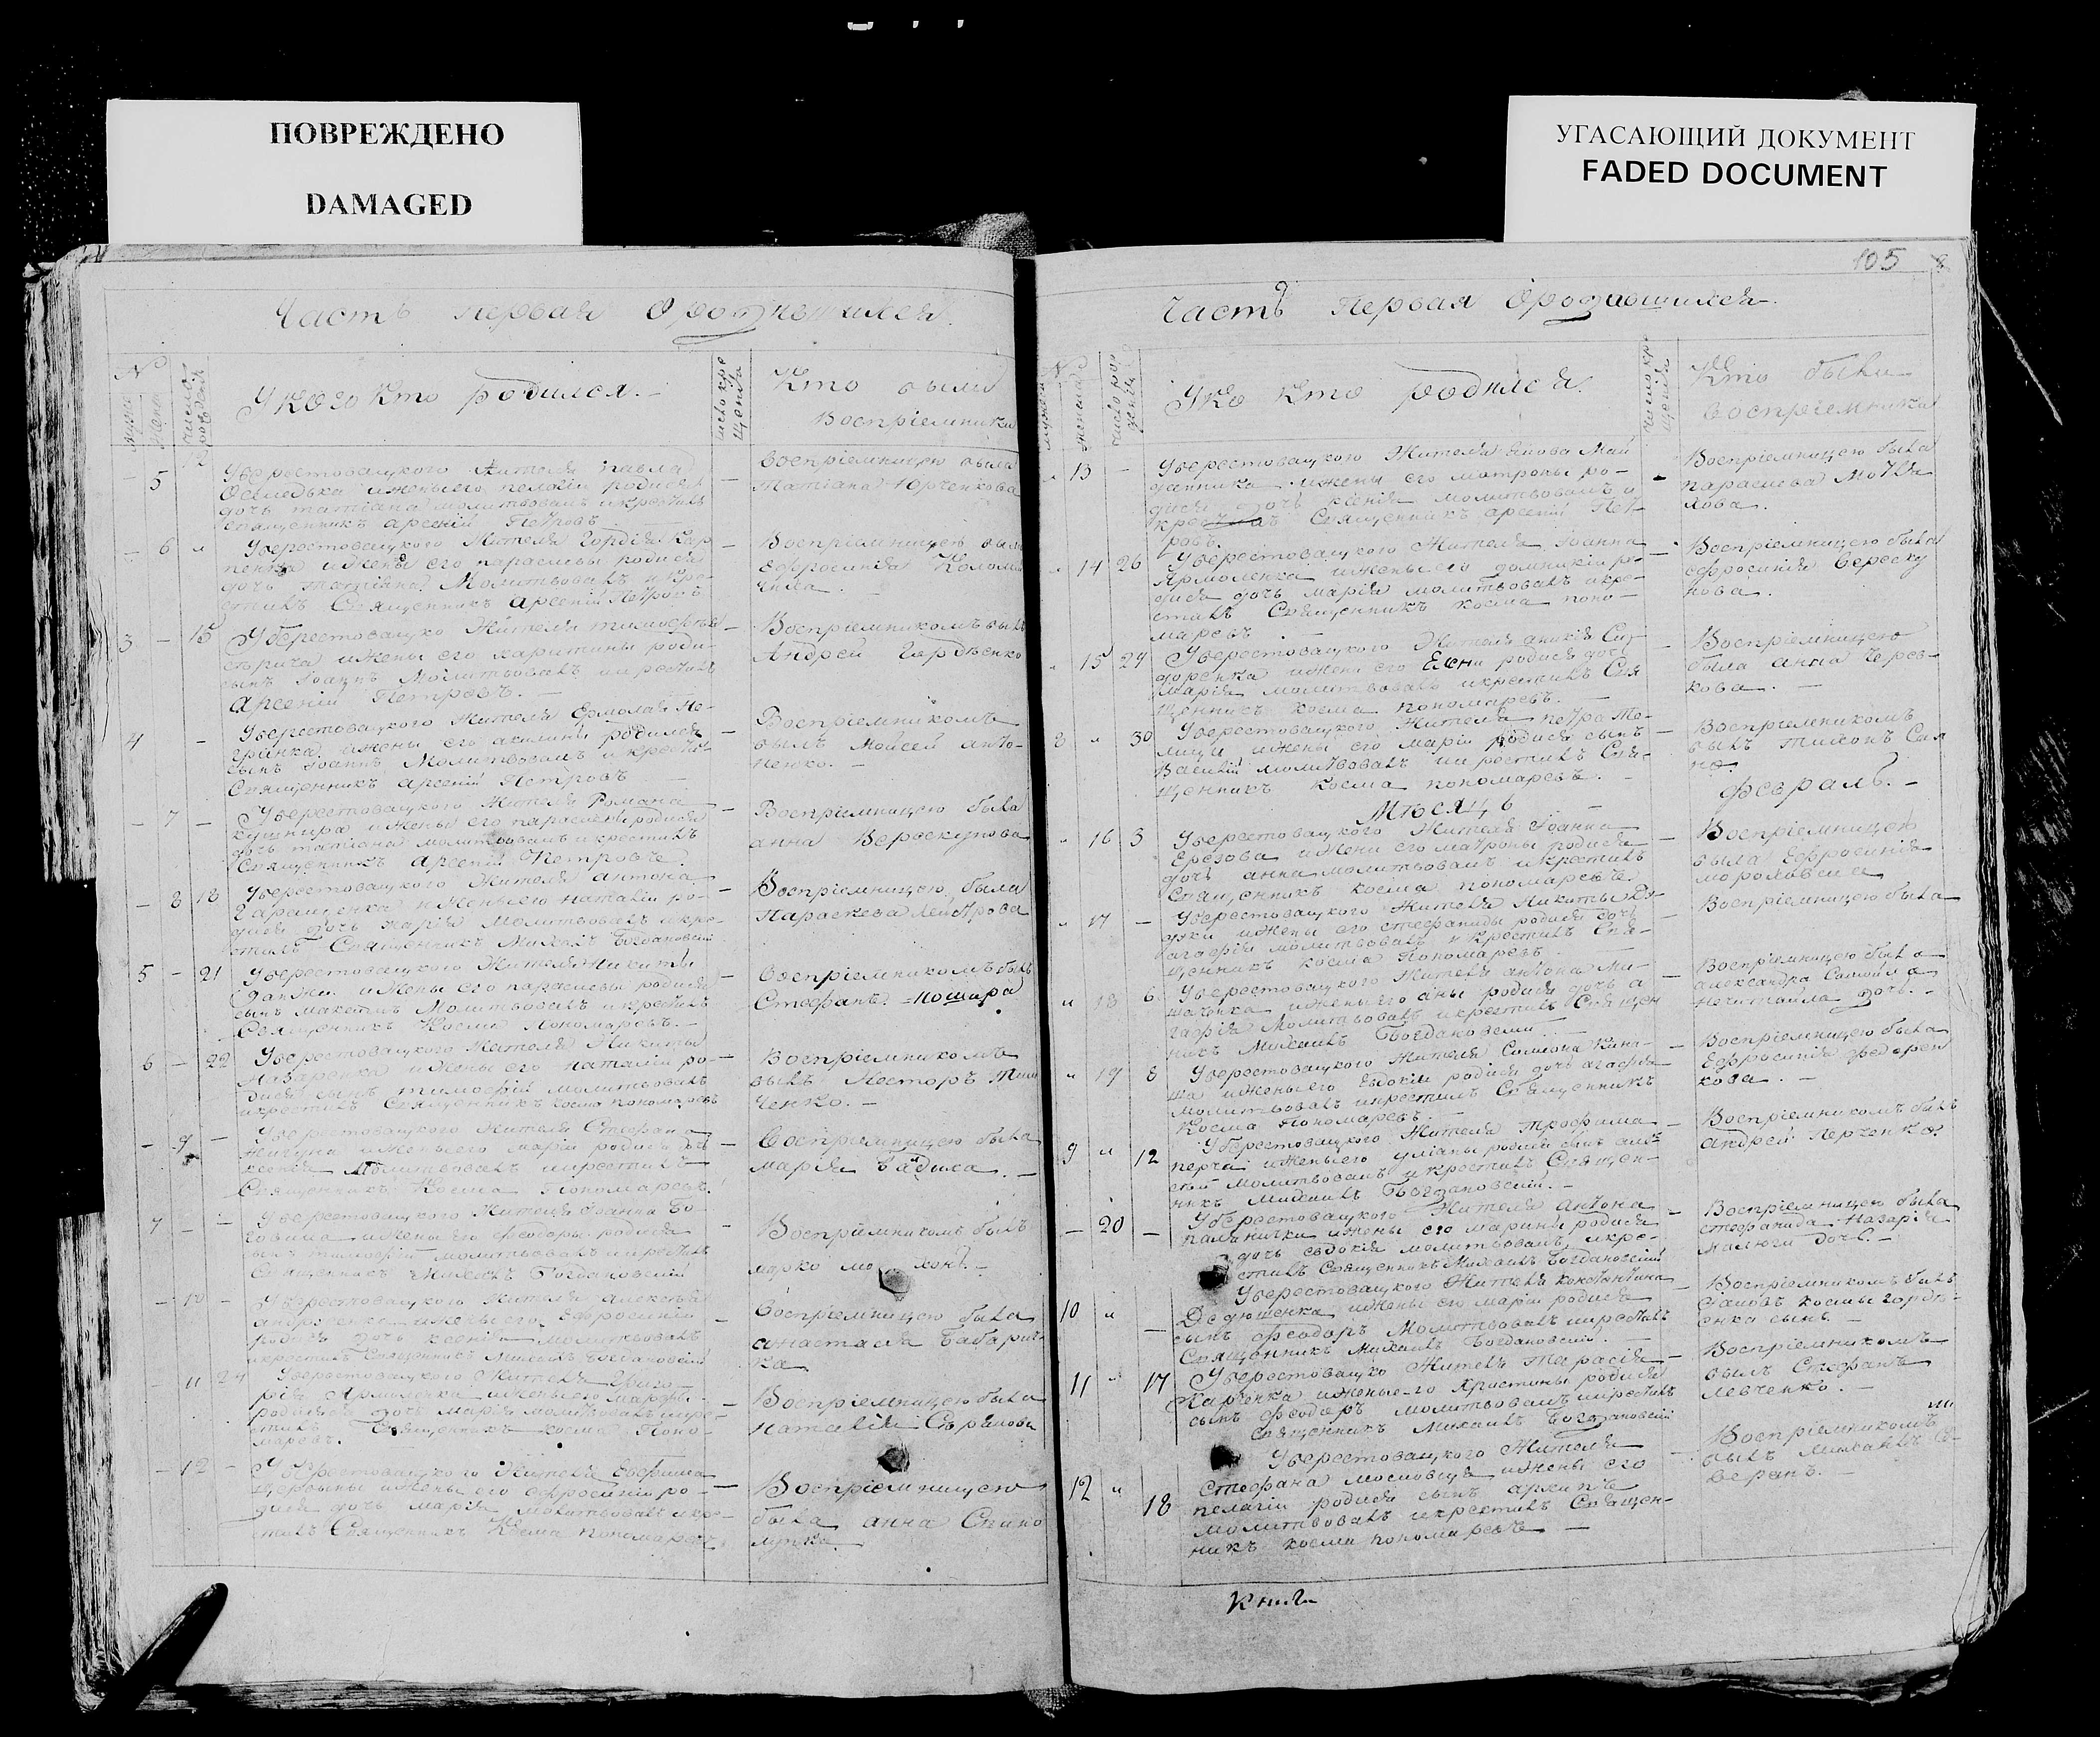 ПОВРЕЖДЕНО
DAMAGED
УГАСАЮЩИЙ ДОКУМЕНТ
FADED DOCUMENT
105
Часть первая О родившихся
У кого кто родился.
Кто были
Воспріемники
5
Уберестовацкого жителя павла
Оследька иженыего пелагіи родися
дочь татіана молитвовалъ икрестилъ
священникъ арсеній Петровъ
воспріемницею была
татіана Юрченкова
6
Уберестовацкого Жителя Гордія Кар
пенка иЖены его параскевы родися
дочь татіана Молитвовалъ икре
стилъ Священникъ Арсеній Петровъ
Воспріемницею была
Ефросинія
3 15
Уберестовацко Жителя тимофея
иЖены его харитины роди
сынъ Іоаннъ Молитвовалъ икрестилъ
Арсеній Петровъ.
Воспріемникомъ былъ
Андрей Гордѣенко
4
Уберестовацкого Жителя Ермолая Не
иЖены его акилины родился
сынъ Іоаннъ Молитвовалъ икрести
Священникъ арсеній Петровъ
Воспріемникомъ
былъ Мойсей анто-
ненко.
7
Уберестовацкого Жителя Романа
кушнира иЖены его параскевы родися
дочь татіана молитвовалъ икрестилъ
Священникъ Арсеній Петровъ.
Воспріемницею была
анна Верескунова
8 18
Уберестовацкого Жителя антона
Гаращенка иЖеныего наталіи ро-
дися дочь марія Молитвовалъ икре-
стилъ Священникъ Михаилъ Богдановскій
Воспріемницею была
Параскева
5 21
Уберестовацкого Жителя Никиты
иЖены его параскевы родися
сынъ максимъ Молитвовалъ икрестилъ
Священникъ Косма Пономаревъ.
воспріемникомъ былъ
Стефанъ Ношира
6 22
Уберестовацкого Жителя Никиты
Назаренка иЖены его наталіи ро-
дися сынъ тимофій молитвовалъ
икрестилъ Священникъ Косма пономаревъ
Воспріемникомъ
былъ Несторъ Тим
ченко.
9
Уберестовацкого Жителя Стефана
иЖеныего маріи родися дочь
ксенія Молитвовалъ икрестилъ
Священникъ Косма Пономаревъ.
Воспріемницею была
марія
7
Уберестовацкого Жителя Іоанна Бо-
иЖены его феодоры родися
сынъ тимофій молитвовалъ икрестилъ
Священникъ Михаилъ Богдановскій
Воспріемникомъ былъ
марко
10
Уберестовацкого Жителя алексѣя
андрѣенка иЖеныего Ефросиніи
дочь ксенія молитвовалъ
икрестилъ Священникъ Михаилъ Богдановскій
Воспріемницею была
анастасія Бабарич
ка
11 24
Уберестовацкого Жителя Григо-
рія Ярмоленка иЖеныего марфы
родися дочь марія молитвовалъ икре-
стилъ Священникъ косма Поно-
маревъ.
Воспріемницею была
наталія
12
Уберестовацкого Жителя Евфима
Щербины иЖены его ефросиніи ро-
дися дочь марія молитвовалъ икре-
стилъ Священникъ Косма пономаревъ
Воспріемницею
была анна
Часть Первая О родившихся
У ко кто родился
Кто были
воспріемники
13
Уберестовацкого Жителя Якова Май
данника иЖены его матроны ро-
дися дочь ксенія молитвовалъ и
крестилъ Священникъ арсеній Пет-
ровъ.
Воспріемницею была
параскева
14 26
Уберестовацкого Жителя Іоанна
Ярмоленка иЖеныего домникіи ро-
дися дочь марія молитвовалъ икре-
стилъ Священникъ косма поно-
маревъ
Воспріемницею была
ефросинія Вереску
нова.
15 29
Уберестовацкого Жителя аникія Си-
доренка иЖени его Елени родися дочь
марія молитвовалъ икрестилъ Свя
щенникъ косма пономаревъ.
Воспріемницею
была анна Черев-
кова.
8 30
Уберестовацкого Жителя петра То-
иЖены его маріи родися сынъ
Василій молитвовалъ икрестилъ Свя-
щенникъ косма пономаревъ.
Воспріемникомъ
былъ тихонъ
Мѣсяцъ
февраль.
16 3
Уберестовацкого Жителя Іоанна
Ерезова иЖени его матроны родися
дочь анна молитвовалъ икрестилъ
Священникъ косма пономаревъ.
Воспріемницею
была Ефросинія
17
Уберестовацкого Жителя Никиты
иЖены его стефаниды родися дочь
агафія молитвовалъ и Крестилъ Свя-
щенникъ косма Пономаревъ.
Воспріемницею была
18 6
Уберестовацкого Жителя антона Ми-
шаченка иЖеныего аны родися дочь а
гафія Молитвовалъ икрестилъ Священ
никъ Михаилъ Богдановскій.
Воспріемницею была
александра Самойла
Нечитайла дочь.
19 8
Уберестовацкого Жителя Симиона Кина-
ша иЖеныего Евдокіи родися дочь агафія
молитвовалъ икрестилъ Священникъ
косма пономаревъ.
Воспріемницею была
Ефросинія федорен
кова.
9 12
Уберестовацкого Жителя трофима
перча иЖеныего уліаны родися сынъ
молитвовалъ икрестилъ Священ-
никъ Михаилъ Богдановскій.
Воспріемникомъ былъ
андрей Лерченко.
20
Уберестовацкого Жителя антона
паланички иЖены его марини родися
дочь евдокія молитвовалъ икре-
стилъ Священникъ Михаилъ Богдановскій
Воспріемницею была
стефанида Назарія
Малюги дочь.
10
Уберестовацкого Жителя Константина
Дедюшенка иЖены его маріи родися
сынъ феодоръ Молитвовалъ икрестилъ
Священникъ Михаилъ Богдановскій.
Воспріемникомъ былъ
Іаковъ космы Гордѣ-
енка сынъ.
11 17
Уберестовацко Жителя Тарасія
Карпенка иЖеныего Христины родися
сынъ феодоръ молитвовалъ икрестилъ
Священникъ Михаилъ Богдановскій
Воспріемникомъ
былъ Стефанъ
Левченко.
12 18
Уберестовацкого Жителя
Стефана московця иЖены его
пелагіи родися сынъ архипъ
молитвовалъ икрестилъ Священ-
никъ косма пономаревъ
Воспріемникомъ
былъ
Книги